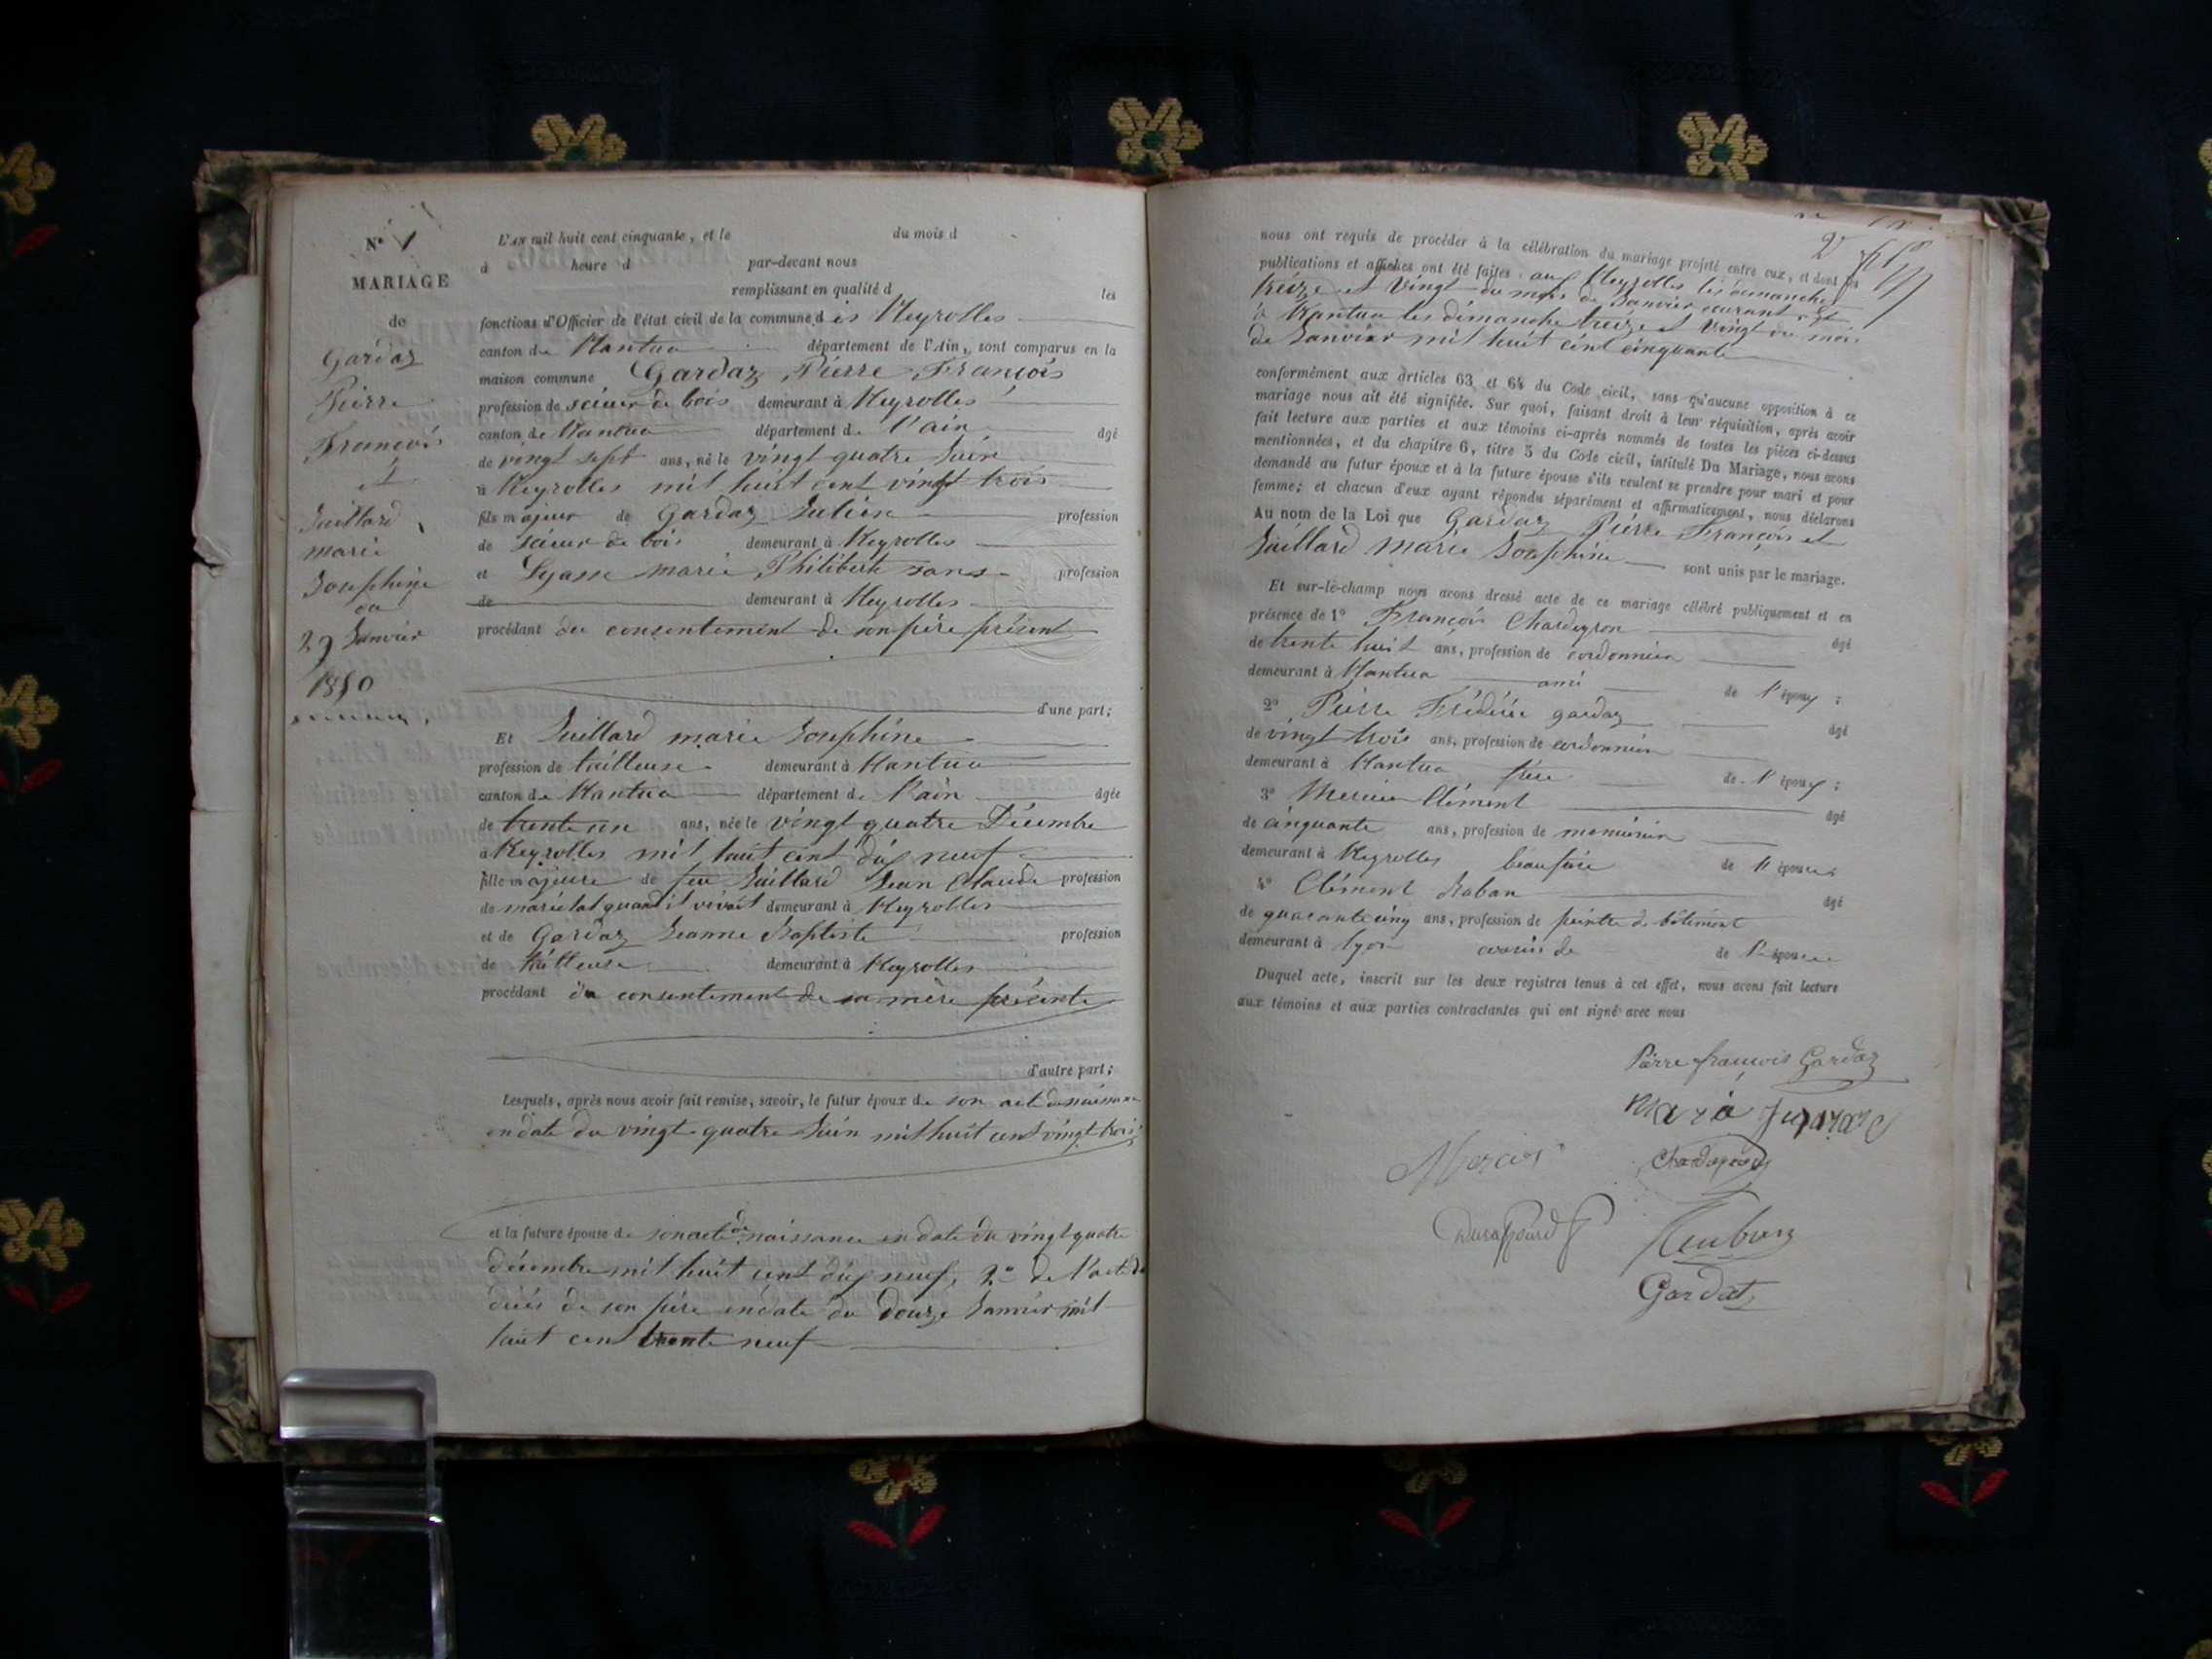 N° 1
MARIAGE
de
Gardaz
Pierre
François
et
Juillard
marie
Josephine
du
29 Janvier
1850
L'AN mil huit cent cinquante, et le du mois d
à heure d par-devant nous
remplissant en qualité d les
fonctions d'Officier de l'état civil de la commune d es Neyrolles
canton de Nantua département de l'Ain, sont comparus en la
maison commune Gardaz Pierre François
profession de scieur de bois demeurant à Neyrolles
canton de Nantua département de l'ain âgé
de vingt sept ans, né le vingt quatre Juin
à Neyrolles mil huit cent vingt trois
fils majeur de Gardaz Julien profession
de scieur de bois demeurant à Neyrolles
et Lyasse marie Philiberte sans profession
de demeurant à Neyrolles
procédant du consentement de son père présent
d'une part;
Et Juillard marie Josephine
profession de tailleuse demeurant à Nantua
canton de Nantua département de l'ain âgée
de trente un ans, née le vingt quatre Décembre
à Neyrolles mil huit cent dix neuf
fille majeure de feu Juillard Jean Claude profession
de marechal quand il vivait demeurant à Neyrolles
et de Gardaz Jeanne Baptiste profession
de tailleuse demeurant à Neyrolles
procédant du consentement de sa mère présente
d'autre part;
Lesquels, après nous avoir fait remise, savoir, le futur époux de son acte de naissance
en date du vingt quatre Juin mil huit cent vingt trois
et la future épouse de son acte de naissance en date du vingt quatre
décembre mil huit cent dix neuf, 2° de l'acte de
décès de son père en date du douze Janvier mil
huit cent trente neuf
nous ont requis de procéder à la célébration du mariage projeté entre eux, et dont les
publications et affiches ont été faites aux Neyrolles les dimanches
treize et vingt du mois de Janvier courant et
à Nantua les dimanche treize et vingt du mois
de Janvier mil huit cent cinquante
conformément aux articles 63 et 64 du Code civil, sans qu'aucune opposition à ce
mariage nous ait été signifiée. Sur quoi, faisant droit à leur réquisition, après avoir
fait lecture aux parties et aux témoins ci-après nommés de toutes les pièces ci-dessus
mentionnées, et du chapitre 6, titre 5 du Code civil, intitulé Du Mariage, nous avons
demandé au futur époux et à la future épouse s'ils veulent se prendre pour mari et pour
femme; et chacun d'eux ayant répondu séparément et affirmativement, nous déclarons
Au nom de la Loi que Gardaz Pierre François et
Juillard Marie Josephine sont unis par le mariage.
Et sur-le-champ nous avons dressé acte de ce mariage célébré publiquement et en
présence de 1° François Chardeyron âgé
de trente huit ans, profession de cordonnier
demeurant à Nantua ami de l'époux;
2° Pierre Frédéric gardaz âgé
de vingt trois ans, profession de cordonnier
demeurant à Nantua frère de l'époux;
3° Mercier Clément âgé
de cinquante ans, profession de menuisier
demeurant à Neyrolles beau frère de l'épouse
4° Clément âgé
de quarante cinq ans, profession de peintre de bâtiment
demeurant à lyon cousin de de l'épouse
Duquel acte, inscrit sur les deux registres tenus à cet effet, nous avons fait lecture
aux témoins et aux parties contractantes qui ont signé avec nous
Pierre françois Gardaz
Maria Juilliard
Mercier
Gardat